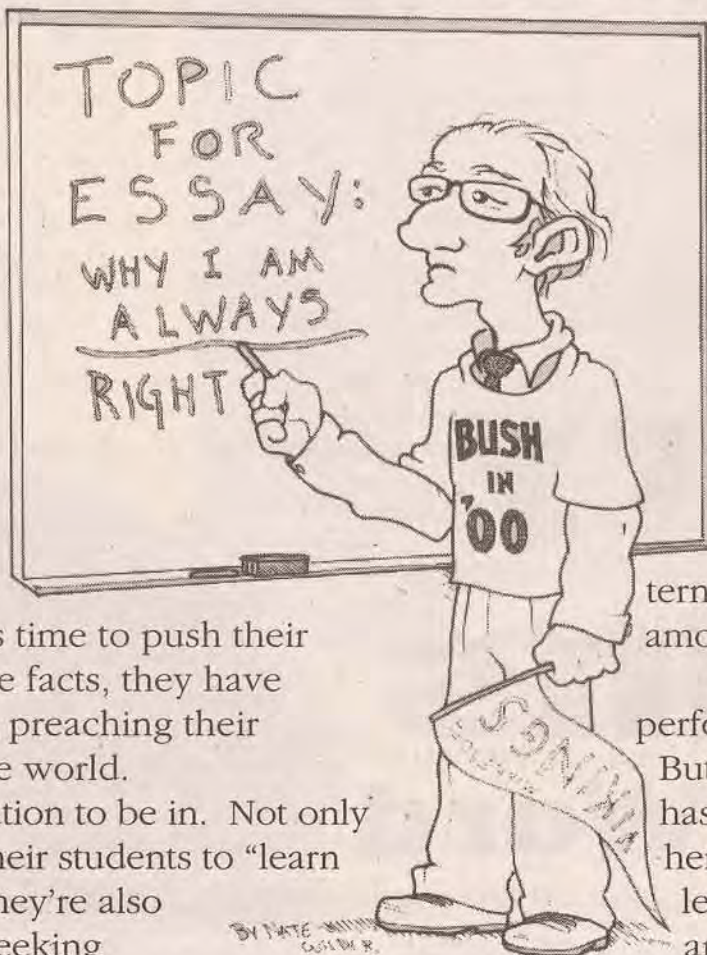 TOPIC
FOR
ESSAY:
WHY I AM
ALWAYS
RIGHT
BUSH
IN
'00
VIKINGS
s time to push their
e facts, they have
preaching their
e world.
ation to be in. Not only
heir students to "learn
hey're also
eeking
BY NATE
tern
amo
perfo
But
has
her
le
an